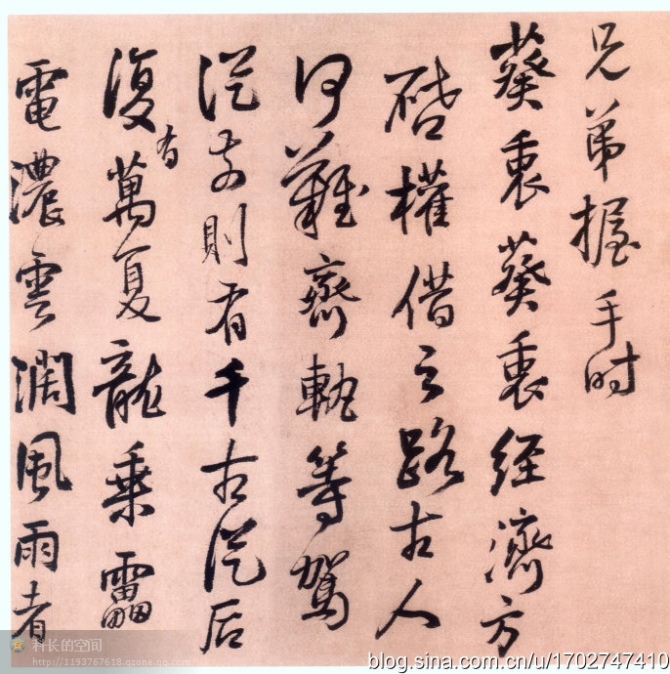 兄弟握手时
葵衷葵衷经濟方
權借之路古人
何難齊軌等駕
從前則有千古從后
復有萬夏龍乘靁
電濃雲潤風雨者
科长的空间
http://1193767618.qzone.qq.com
blog.sina.com.cn/u/1702747410